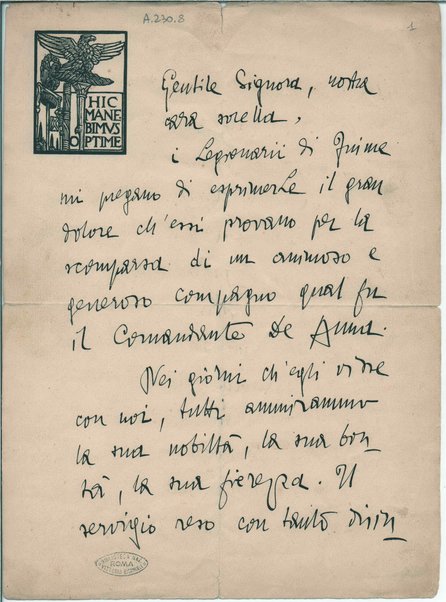 A.230.8
1
HIC
MANE
BIMVS
OPTIME
Gentile Signora, nostra
cara sorella,
i Legionarii di Fiume
mi pregano di esprimerLe il gran
dolore ch'essi provano per la
scomparsa di un animoso e
generoso compagno qual fu
il Comandante De Anna.
Nei giorni ch'egli visse
con noi, tutti ammirammo
la sua nobiltà, la sua bon
tà, la sua fierezza. Il
servigio reso con tanto
BIBLIOTECA NAZ.
ROMA
VITTORIO EMANUELE